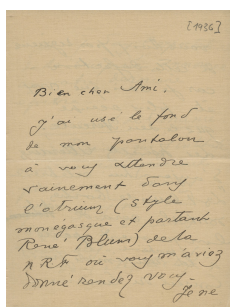 [1936]
Bien cher Ami,
j'ai usé le fond
de mon pantalon
à vous attendre
vainement dans
l'atrium (style
monégasque et partant
René Blum) de la
NRF où vous m'aviez
donné rendez vous.
Je ne